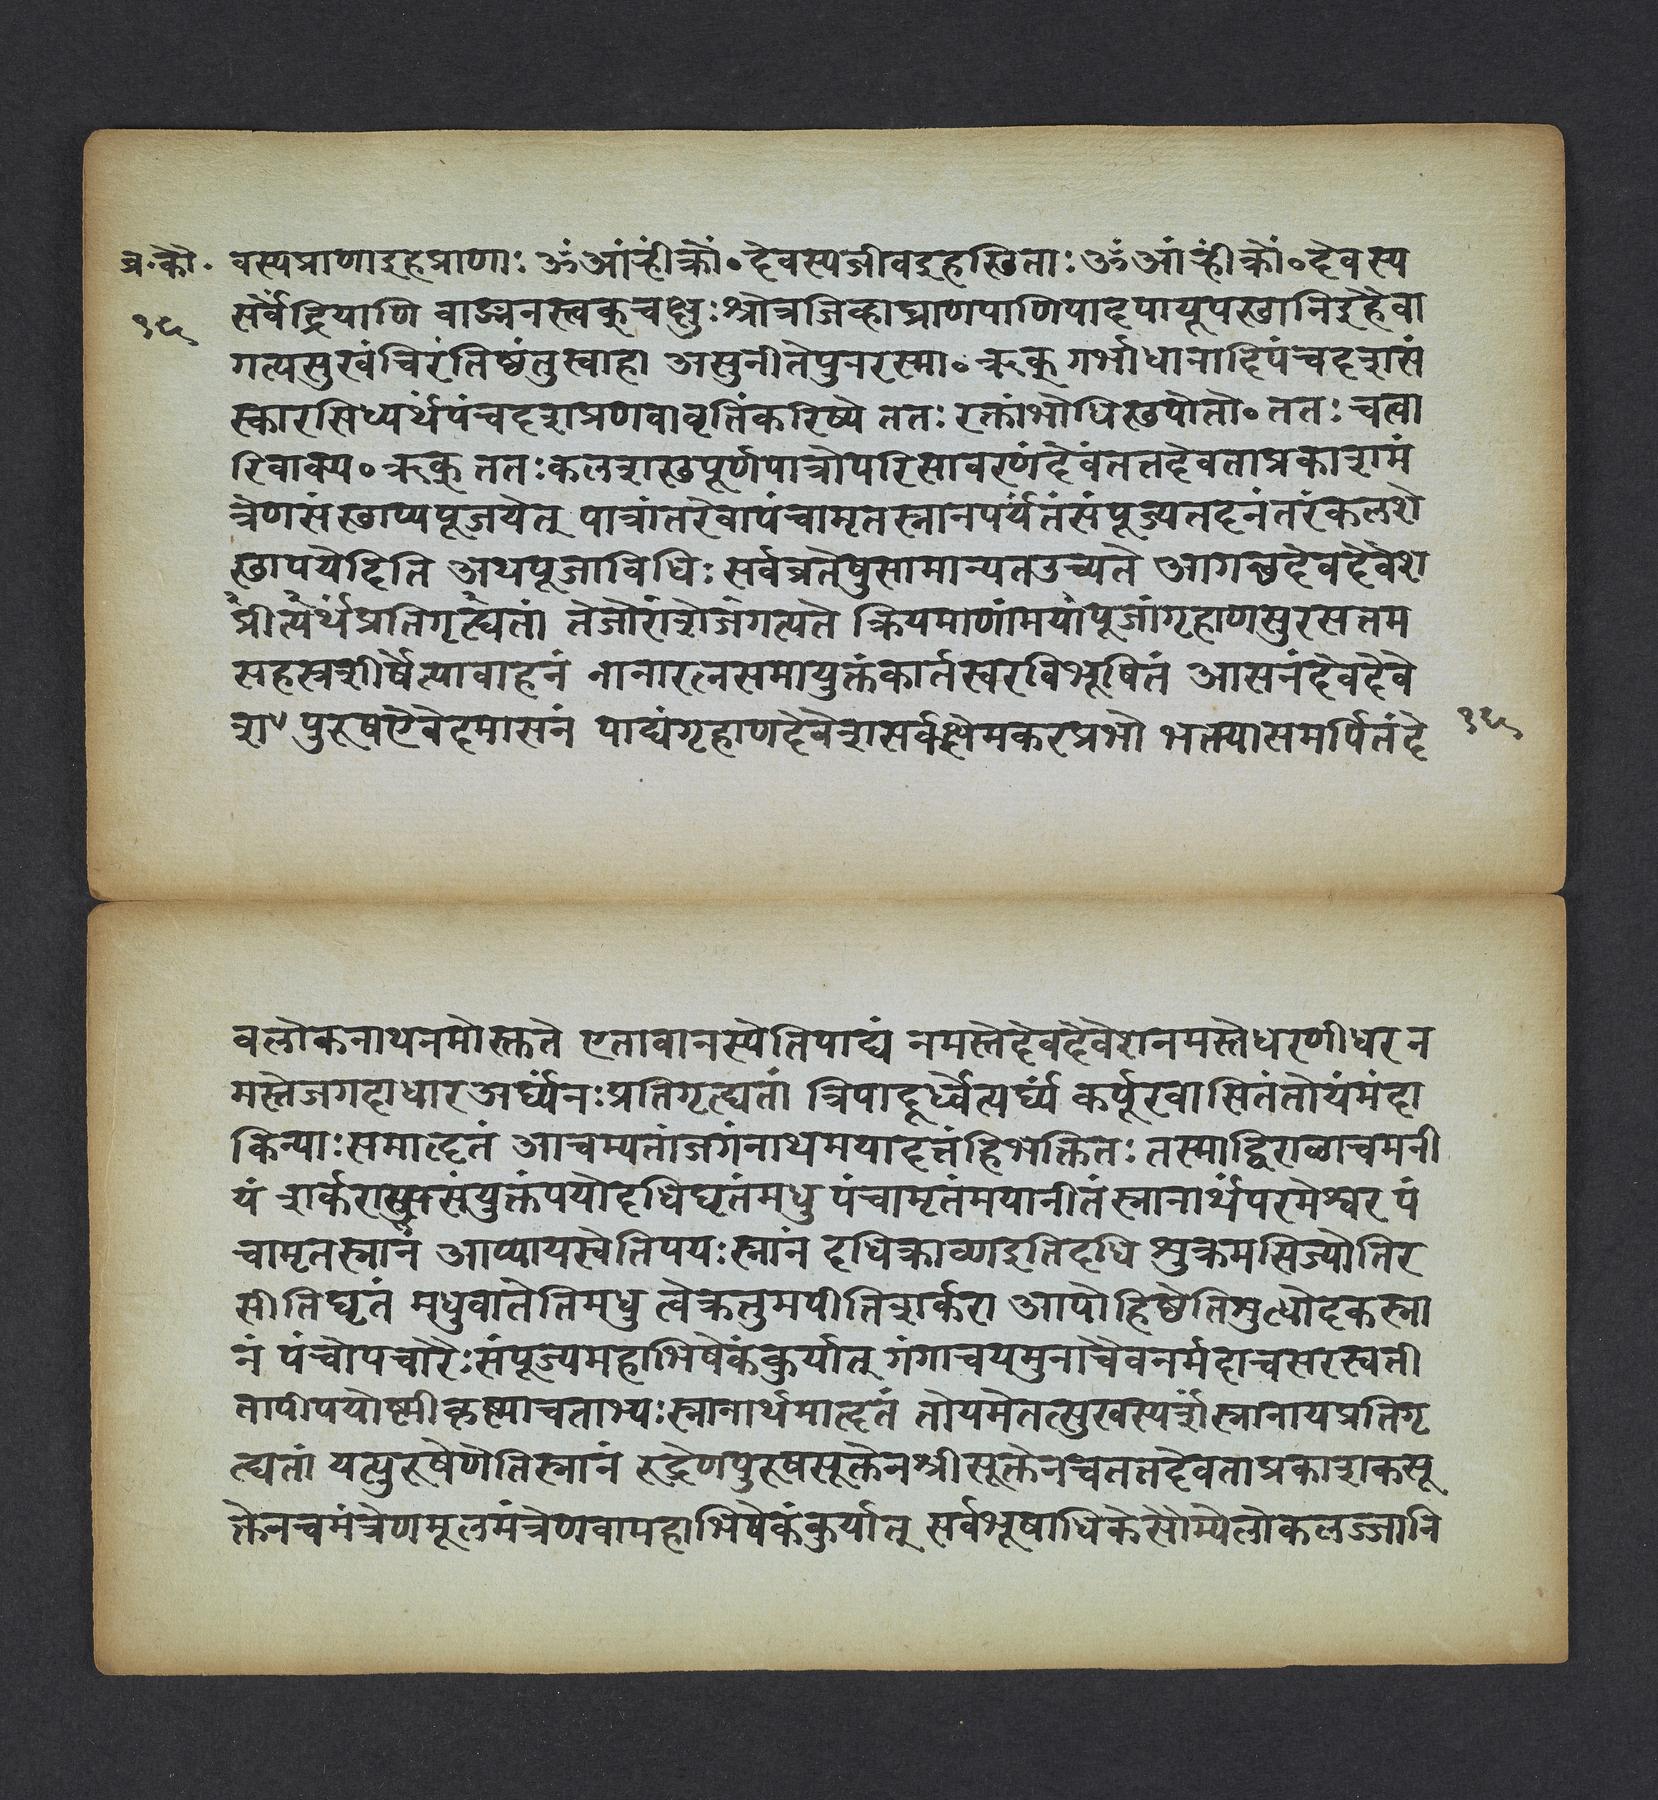 व्र.कौ. वस्यप्राणाइहप्राणाः ॐआंह्रींक्रों॰देवस्यजीवइहस्थिताः ॐआंह्रींक्रों॰देवस्य
१५ सर्वेंद्रियाणि वाङ्मनस्त्वक्चक्षुःश्रोत्रजिव्हाघ्राणपाणिपादपायूपस्थानिइहैवा
गत्यसुखंचिरंतिष्ठंतुस्वाहा असुनीतेपुनरस्मा॰ऋक् गर्भाधानादिपंचदशसं
स्कारसिध्यर्थंपंचदशप्रणवावृतिंकरिष्ये ततः रक्तांभोधिस्थपोतो॰ततः चत्वा
रिवाक्य॰ऋक् ततःकलशस्थपूर्णपात्रोपरिसावरणंदेवंतत्तद्देवताप्रकाशमं
त्रेणसंस्थाप्यपूजयेत् पात्रांतरेवापंचामृतस्नानपर्यंतंसंपूज्यतदनंतरंकलशे
स्थापयेदिति अथपूजाविधिः सर्वव्रतेषुसामान्यतउच्यते आगच्छदेवदेवेश
प्रीत्यर्थंप्रतिगृत्द्यतां तेजोराशेजगत्पते क्रियमाणांमयापूजांगृहाणसुरसत्तम
सहस्रशीर्षेत्यावाहनं नानारत्नसमायुक्तंकार्तस्वरविभूषितं आसनंदेवदेवे
श पुरूषएवेदमासनं पाद्यंगृहाणदेवेशसर्वक्षेमकरप्रभो भक्त्यासमर्पितंदे १५
वलोकनाथनमोस्तुते एतावानस्येतिपाद्यं नमस्तेदेवदेवेशनमस्तेधरणीधर न
मस्तेजगदाधारअर्घ्यंनःप्रतिगृत्द्यतां त्रिपादूर्ध्वेत्यर्घ्यं कर्पूरवासितंतोयंमंदा
किन्याःसमात्दृतं आचम्यतांजगंनाथमयादत्तंहिभक्तितः तस्माद्विराळाचमनी
यं शर्करासंयुक्तंपयोदधिघृतंमधु पंचामृतंमयानीतंस्नानार्थंपरमेश्वर पं
चामृतस्नानं आप्यायस्वेतिपयःस्नानं दधिक्राव्णइतिदधि शुक्रमसिज्योतिर
सीतिघृतं मधुवातेतिमधु त्वेक्रतुमपीतिशर्करा आपोहिष्ठेतिशुध्योदकस्ना
नं पंचोपचारैःसंपूज्यमहाभिषेकंकुर्यात् गंगाचयमुनाचैवनर्मदाचसरस्वती
तापीपयोष्णीकृष्णाचताभ्यःस्नानार्थमात्दृतं तोयमेतत्सुखस्पर्शंस्नानायप्रतिगृ
त्द्यतां यत्पुरूषेणेतिस्नानं रुद्रेणपुरुषसूक्तेनश्रीसूक्तेनचतत्तद्देवताप्रकाशकसू
क्तेनचमंत्रेणमूलमंत्रेणवामहाभिषेकंकुर्यात् सर्वभूषाधिकेसौम्येलोकलज्जानि